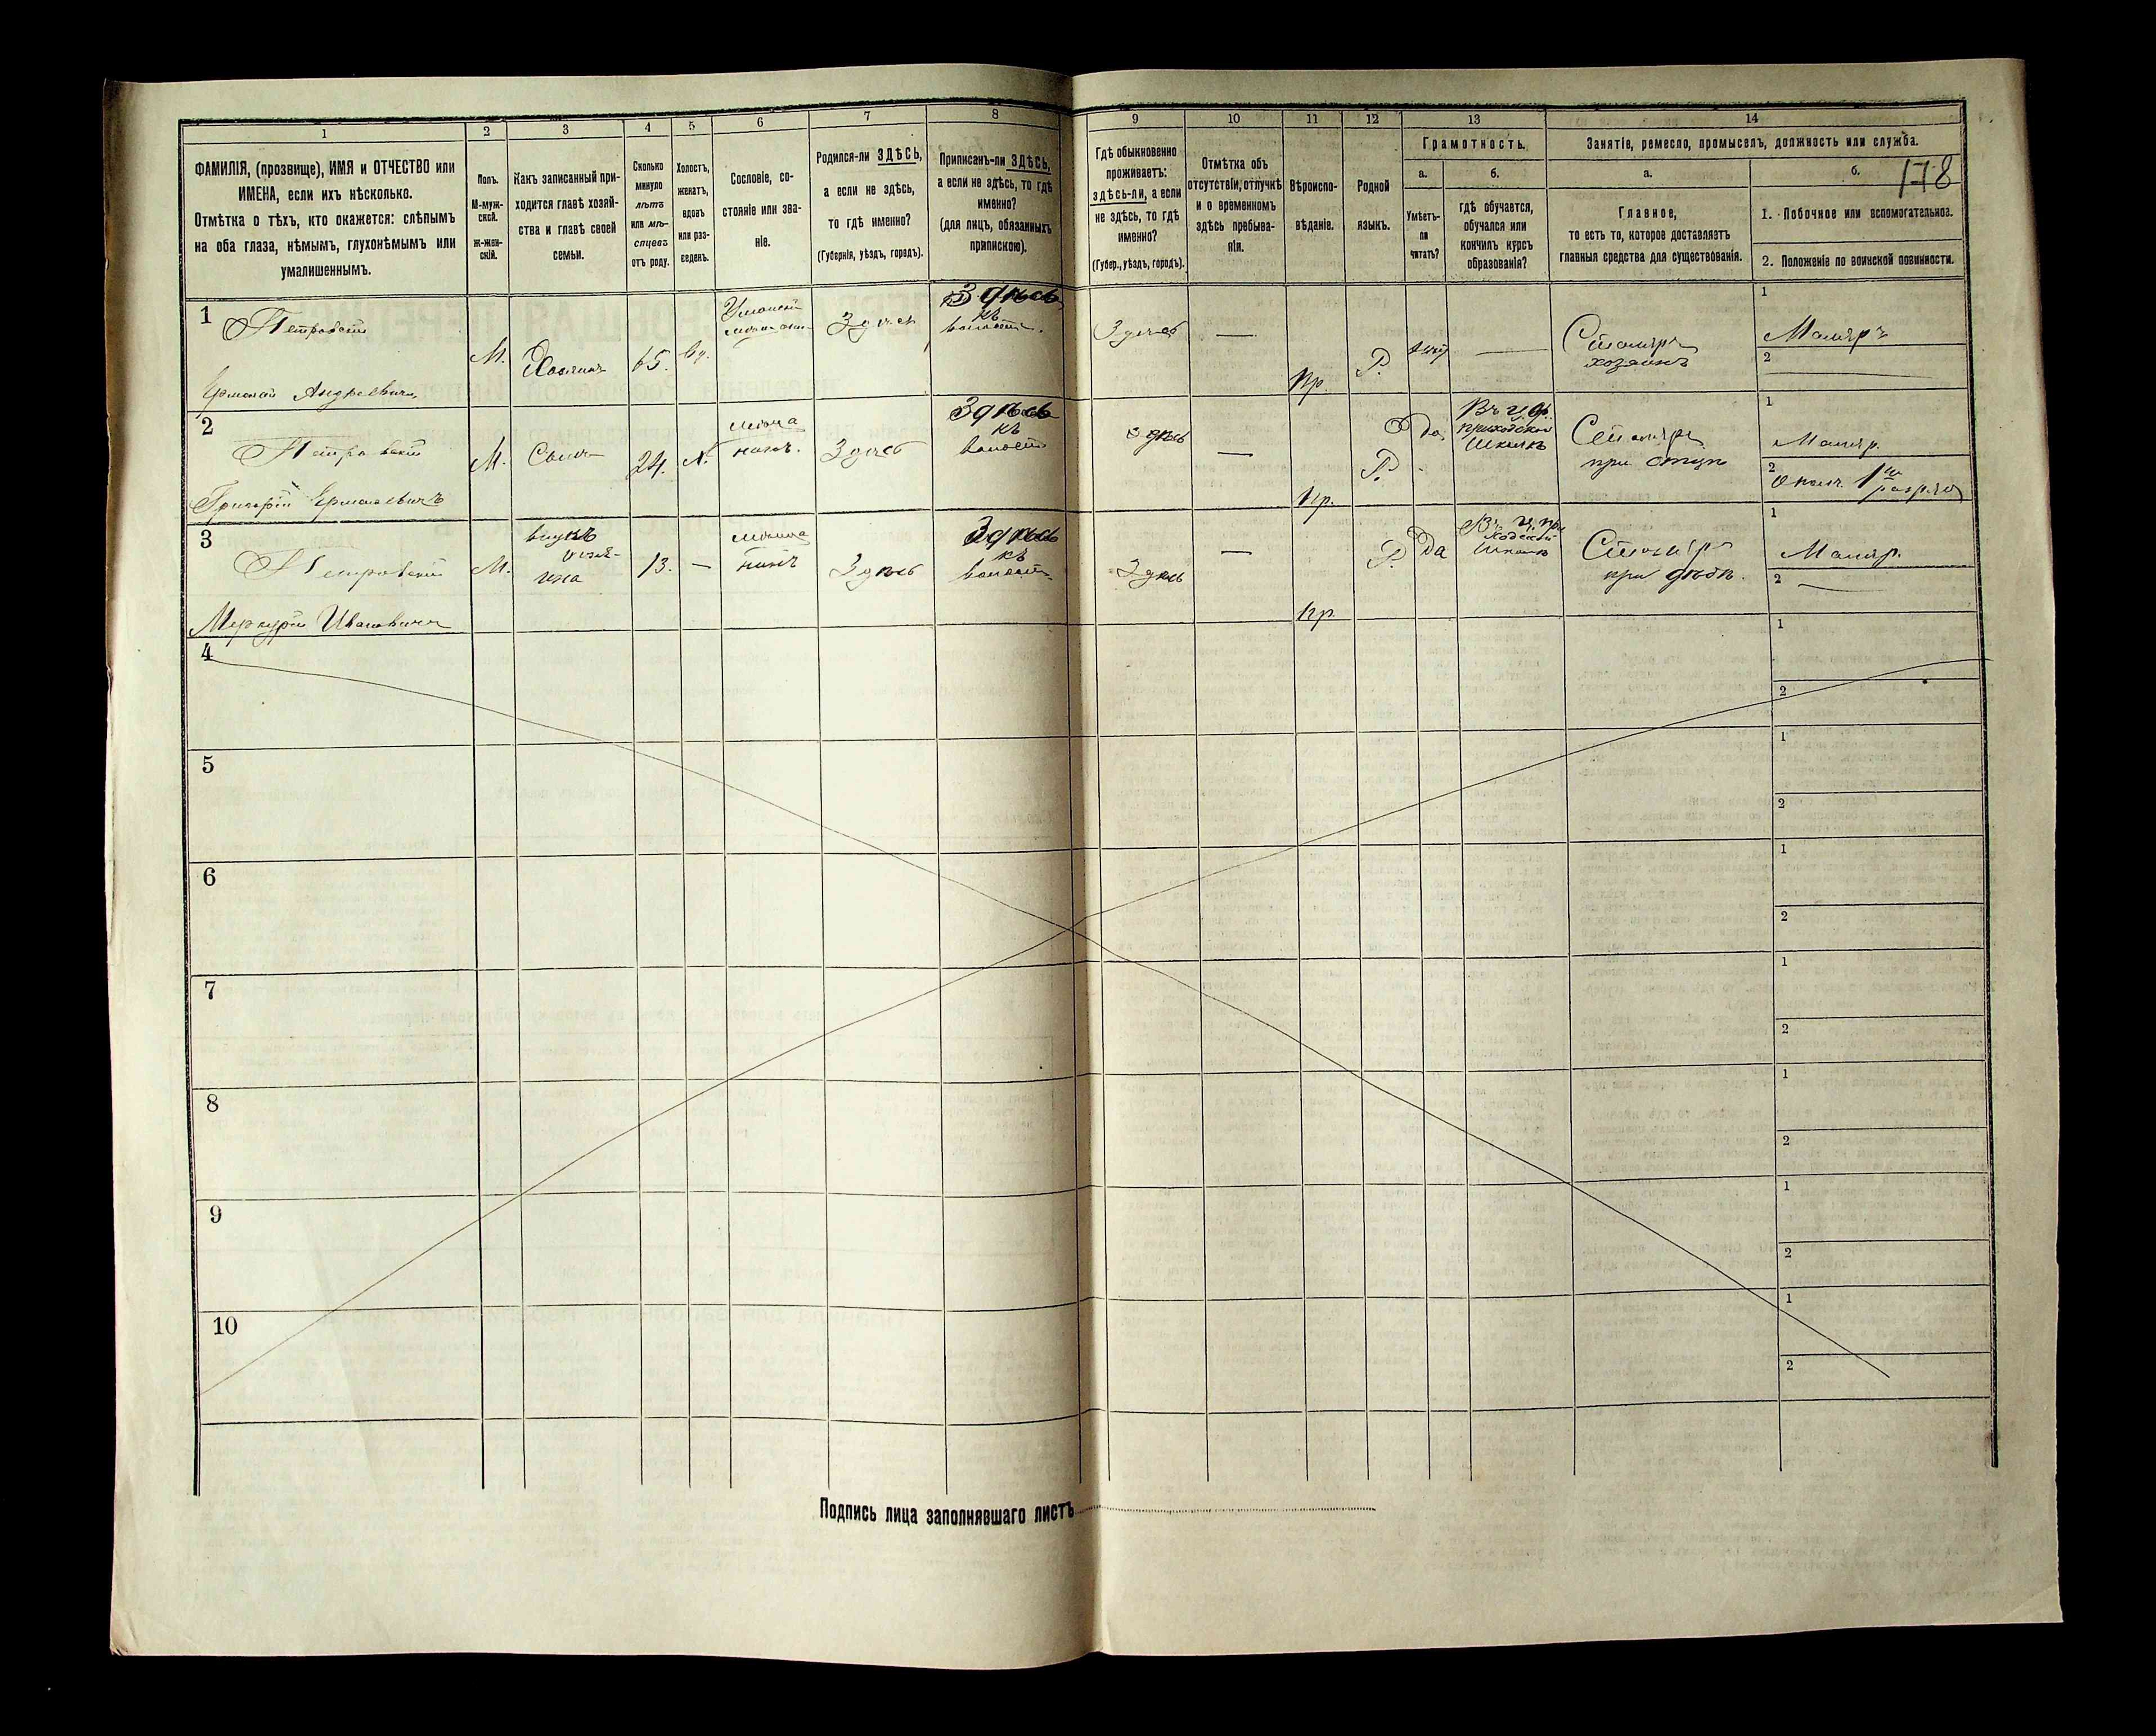 1 2 3 4 5 6 7 8 9 10 11 12 13 14
ФАМИЛІЯ, (прозвище), ИМЯ и ОТЧЕСТВО или
ИМЕНА, если ихъ нѣсколько.
Отмѣтка о тѣхъ, кто окажется: слѣпымъ
на оба глаза, нѣмымъ, глухонѣмымъ или
умалишеннымъ.
Полъ.
М-муж-
ской.
Ж-жен-
скій.
Какъ записанный при-
ходится главѣ хозяй-
ства и главѣ своей
семьи.
Сколько
минуло
лѣтъ
или мѣ-
сяцевъ
отъ роду.
Холостъ,
женатъ,
вдовъ
или раз-
веденъ.
Сословіе, со-
стояніе или зва-
ніе.
Родился-ли ЗДѢСЬ,
а если не здѣсь,
то гдѣ именно?
(Губернія, уѣздъ, городъ).
Приписанъ-ли ЗДѢСЬ,
а если не здѣсь, то гдѣ
именно?
(для лицъ, обязанныхъ
припискою).
Гдѣ обыкновенно
проживаетъ:
здѣсь-ли, а если
не здѣсь, то гдѣ
именно?
(Губер., уѣздъ, городъ).
Отмѣтка объ
отсутствіи, отлучкѣ
и о временномъ
здѣсь пребыва-
ніи.
Вѣроиспо-
вѣданіе.
Родной
языкъ.
Грамотность.
а.
Умѣетъ-
ли
читать?
б.
гдѣ обучается,
обучался или
кончилъ курсъ
образованія?
Занятіе, ремесло, промыселъ, должность или служба.
а.
Главное,
то есть то, которое доставляетъ
главныя средства для существованія.
б.
178
1. Побочное или вспомогательное.
2. Положеніе по воинской повинности.
1
Петровскій
Ермолай Андреевичъ
М.
Хозяинъ
65.
вд.
Здѣсь
Здѣсь
къ
волости.
Здѣсь
—
Пр.
Р.
—
Столяръ
хозяинъ
1
Маляръ
2
2
Петровскій
Григорій Ермолаевичъ
М.
Сынъ
24.
мѣща
нинъ.
Здѣсь
Здѣсь
къ
волости
здѣсь
—
Пр.
Р.
да.
Въ ц.
приходской
школѣ
Столяръ
при отцѣ
1
Маляр.
2
1го
разряд
3
Петровскій
Меркурій Ивановичъ
М.
внукъ
хозя-
ина
13.
—
мѣща
нинъ
Здѣсь
Здѣсь
къ
волости.
Здѣсь
—
Пр
Р.
Да
Въ ц. при
ходской
школѣ
Столяръ
при дѣдѣ.
1
Маляр.
2
4
1
2
5
1
2
6
1
2
7
1
2
8
1
2
9
1
2
10
1
2
Подпись лица заполнявшаго листъ